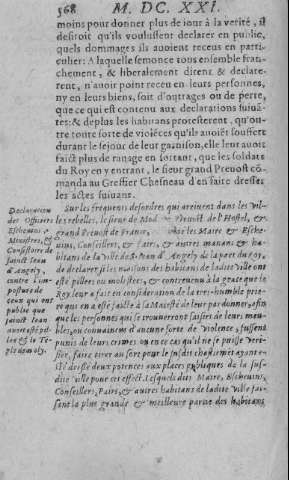 568 M. DC. XXI.
moins pour donner plus de iour à la verité, il
desiroit qu'ils voulussent declarer en public,
quels dommages ils auoient receus en parti-
culier: A laquelle semonce tous ensemble fran-
chement, & liberalement dirent & declare-
rent, n'auoir point receu en leurs personnes,
ny en leurs biens, soit d'outrages ou de perte,
que ce qui est contenu aux declarations suiuā-
tes: & deplus les habitans protesterent, qu'ou-
tre toute sorte de violēces qu'ils auoiēt souffert
durant le sejour de leur garnison, elle leur auoit
faict plus de rauage en sortant, que les soldats
du Roy en y entrant, le sieur grand Preuost cō-
manda au Greffier Chesneau d'en faire dresser
les actes suiuans.
Declaration
des Officiers
Escheuins,
Ministres, &
Consistoire de
sainct Iean
d'Angely,
contre l'im-
posture de
ceux qui ont
publié que
sainct Iean
auoit esté pil-
lee & le Te-
ple desmoly.
Sur les frequents desordres qui arriuent dans les vil-
les rebelles, le sieur de Mod Preuost de l'Hostel, &
grand Preuost de France, les Maire & Esche-
uins, Conseillers, & Pairs, & autres manans & ha-
bitans de la ville de S. Iean d'Angely de la part du Roy,
de declarer si les maisons des habitans de ladite ville ont
esté pillees ou molestees, & contreuenu à la grace que le
Roy leur a fait en consideration de la tres-humble prie-
re qui en a esté faicte à sa Maiesté de leur pardonner, afin
que les personnes qui se trouueront saisies de leurs meu-
bles, ou conuaincus d'aucune sorte de violence, fussent
punis de leurs crimes ou en cas qu'il ne se puisse veri-
fier, faire tirer au sort pour le subir chastiment ayant es-
té dressé deux potences aux places publiques de la sus-
dite ville pour cet effect. Lesquels dits Maire, Escheuins,
Conseillers, Pairs, & autres habitans de ladite ville fai-
sant la plus grande & meilleure partie des habitans